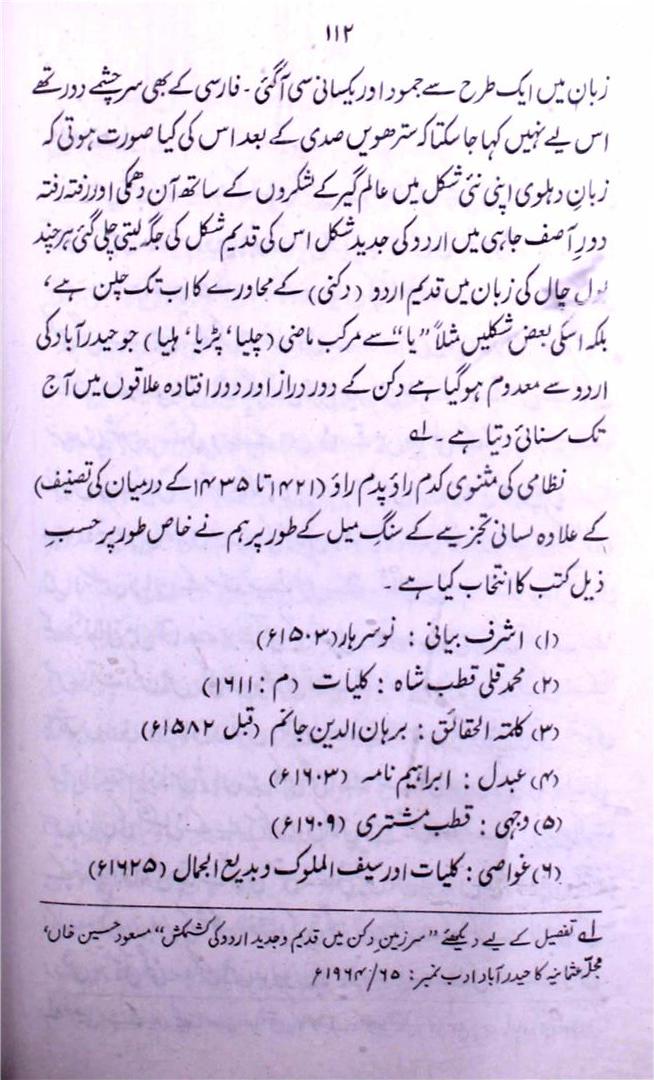 ۱۱۲
زبان میں ایک طرح سے جمود اور یکسانی سی آگئی ۔ فارسی کے بھی سرچشمے دور تھے
اس لیے نہیں کہا جا سکتا کہ سترھویں صدی کے بعد اس کی کیا صورت ہوتی کہ
زبانِ دہلوی اپنی نئی شکل میں عالم گیر کے لشکروں کے ساتھ آن دھمکی اور رفتہ رفتہ
دورِ آصف جاہی میں اردو کی جدید شکل اس کی قدیم شکل کی جگہ لیتی چلی گئی ہر چند
بول چال کی زبان میں قدیم اردو (دکنی) کے محاورے کا اب تک چلن ہے ،
بلکہ اسکی بعض شکلیں مثلاً ”یا“ سے مرکب ماضی (چلیا، پڑیا، ہلیا) جو حیدرآباد کی
اردو سے معدوم ہوگیا ہے دکن کے دور دراز اور دور افتادہ علاقوں میں آج
تک سنائی دیتا ہے ۔ لے
نظامی کی مثنوی کدم راؤ پدم راؤ (۱۴۲۱ تا ۱۴۳۵ کے درمیان کی تصنیف)
کے علاوہ لسانی تجزیے کے سنگ میل کے طور پر ہم نے خاص طور پر حسبِ
ذیل کتب کا انتخاب کیا ہے ۔
(۱) اشرف بیانی : نوسرہار (۱۵۰۳ء)
(۲) محمد قلی قطب شاہ : کلیات (م : ۱۶۱۱)
(۳) کلمتہ الحقائق : برہان الدین جانم (قبل ۱۵۸۲ء)
(۴) عبدل : ابراہیم نامہ (۱۶۰۳ء)
(۵) وجہی : قطب مشتری (۱۶۰۹ء)
(۶) غواصی : کلیات اور سیف الملوک و بدیع الجمال (۱۶۲۵ء)
لے تفصیل کے لیے دیکھئے ”سرزمینِ دکن میں قدیم و جدید اردو کی کشمکش“ مسعود حسین خاں،
مجلّہ عثمانیہ کا حیدرآباد ادب نمبر : ۶۵/۱۹۶۴ء